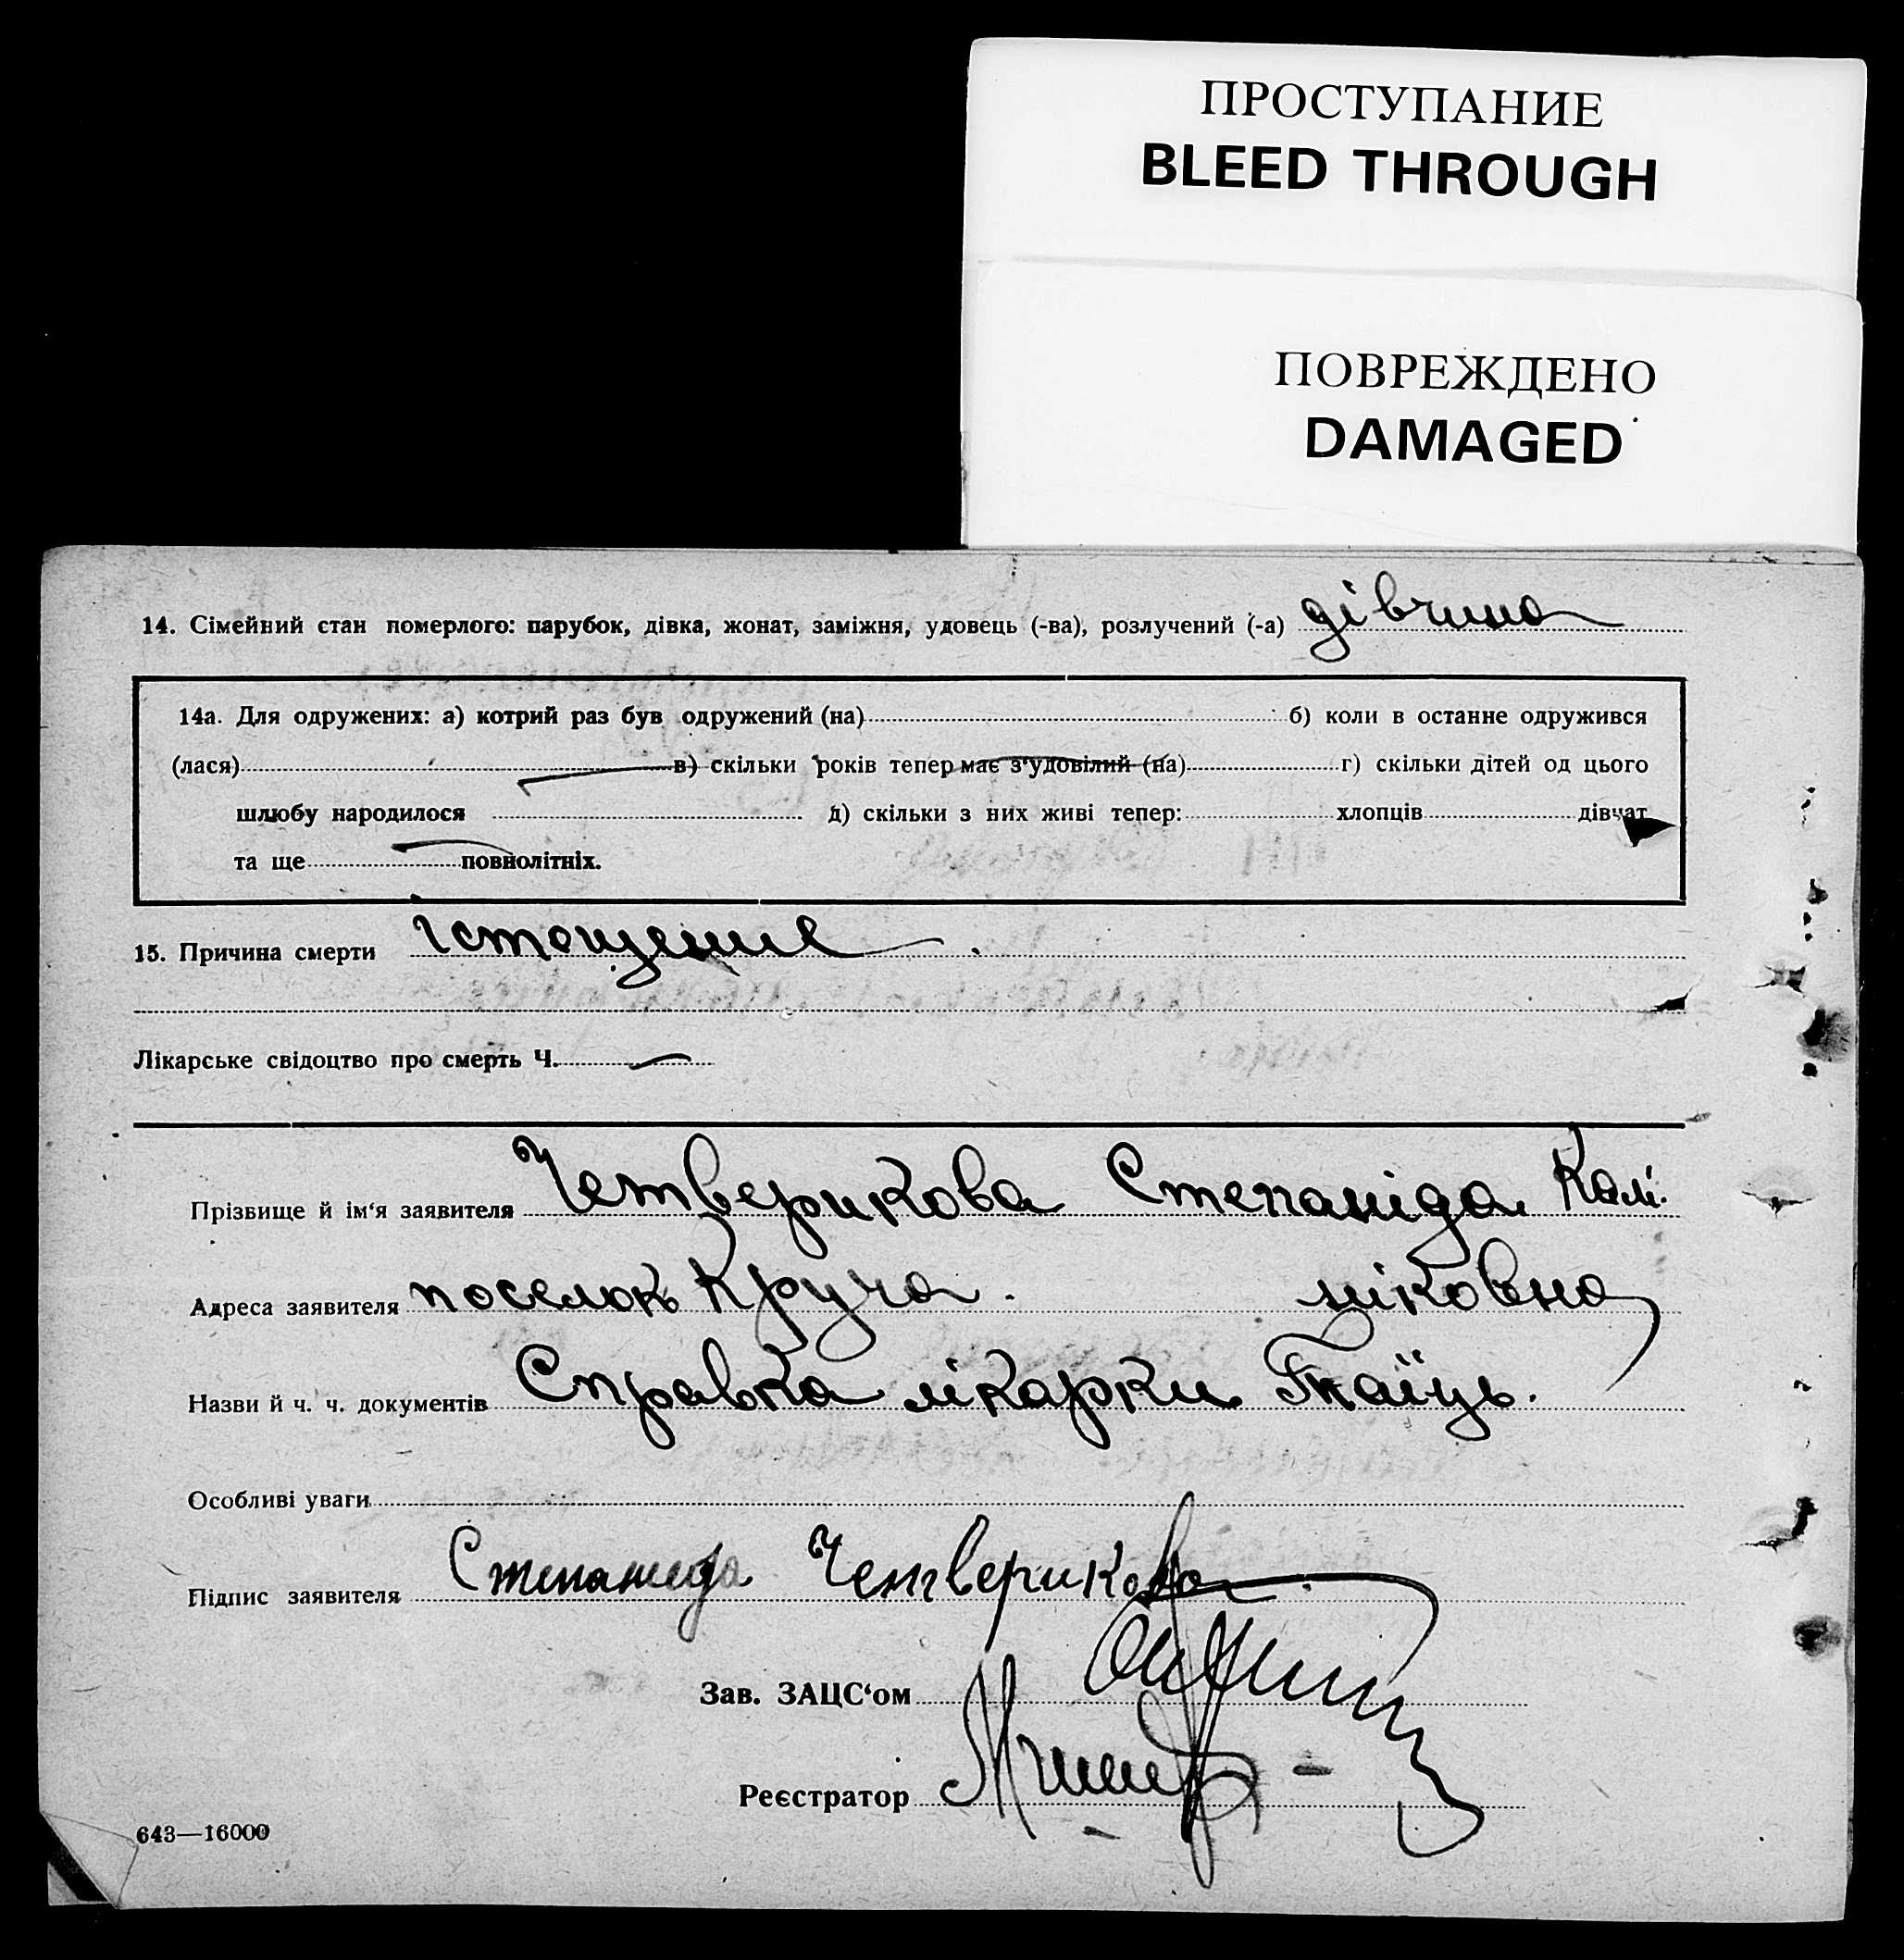 ПРОСТУПАНИЕ
BLEED THROUGH
ПОВРЕЖДЕНО
DAMAGED
14. Сімейний стан померлого: парубок, дівка, жонат, заміжня, удовець (-ва), розлучений (-а) дівчина
14а. Для одружених: а) котрий раз був одружений (на) б) коли в останне одружився
(лася) в) скільки років тепер має з'удовілий (на) г) скільки дітей од цього
шлюбу народилося д) скільки з них живі тепер: хлопців дівчат
та ще повнолітніх.
15. Причина смерти істощение
Лікарське свідоцтво про смерть Ч. —
Прізвище й ім'я заявителя Четверикова Степаніда Калі-
Адреса заявителя поселок Круча. ніковна
Назви й ч. ч. документів Справка лікарки
Особливі уваги
Підпис заявителя Степанида Четверикова
Зав. ЗАЦС'ом
Реєстратор
643—16000